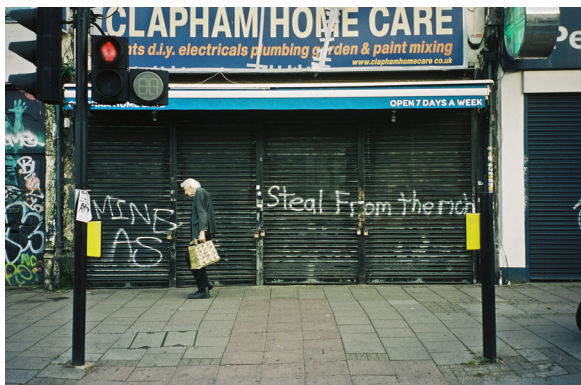 CLAPHAM HOME CARE
nts d.i.y. electricals plumbing garden & paint mixing
www.claphamhomecare.co.uk
OPEN 7 DAYS A WEEK
MINE
AS
Steal From the rich